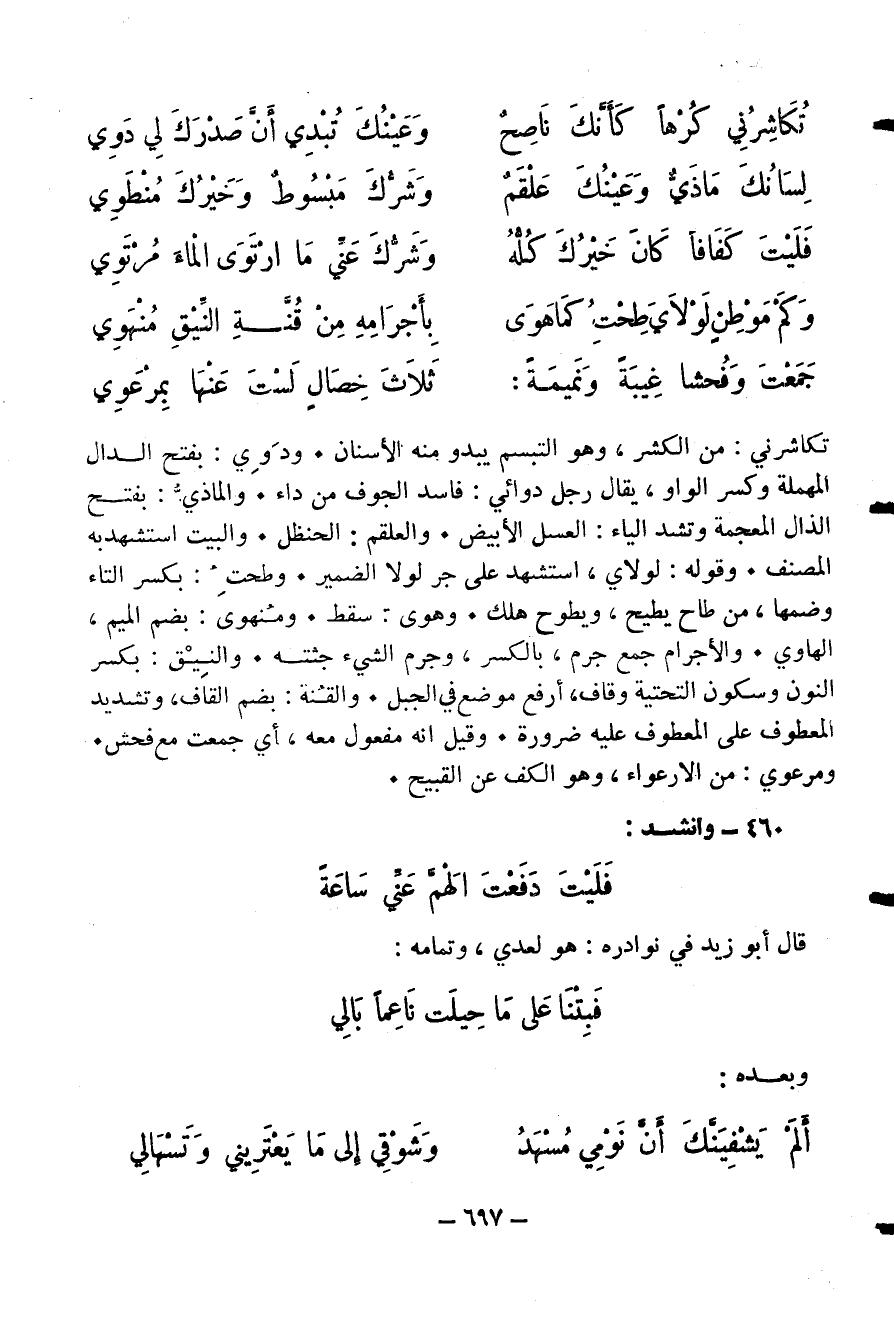 تُكَاشِرُنِي كُرْهاً كَأَنَّكَ نَاصِحٌ وَعَيْنُكَ تُبْدِي أَنَّ صَدْرَكَ لِي دَوِي
لِسَانُكَ مَاذِيٌّ وَعَيْنُكَ عَلْقَمٌ وَشَرُّكَ مَبْسُوطٌ وَخَيْرُكَ مُنْطَوِي
فَلَيْتَ كَفَافاً كَانَ خَيْرُكَ كُلُّهُ وَشَرُّكَ عَنِّي مَا ارْتَوَى الْمَاءَ مُرْتَوِي
وَكَمْ مَوْطِنٍ لَوْلَايَ طِحْتُ كَمَا هَوَى بِأَجْرَامِهِ مِنْ قُنَّـــةِ النِّيْقِ مُنْهَوِي
جَمَعْتَ وَفُحشا غِيبَةً وَنَمِيمَـةً : ثَلَاثَ خِصَالٍ لَسْتَ عَنْهَا بِمرْعَوِي
تكاشرني : من الكشر ، وهو التبسم يبدو منه الأسنان ٠ ودَوِي : بفتح الـدال
المهملة وكسر الواو ، يقال رجل دوائي : فاسد الجوف من داء ٠ والماذيّ : بفتـح
الذال المعجمة وتشد الياء : العسل الأبيض ٠ والعلقم : الحنظل ٠ والبيت استشهدبه
المصنف ٠ وقوله : لولاي ، استشهد على جر لولا الضمير ٠ وطحتُِ : بكسر التاء
وضمها ، من طاح يطيح ، ويطوح هلك ٠ وهوى : سقط ٠ ومُنهوى : بضم الميم ،
الهاوي ٠ والأجرام جمع جرم ، بالكسر ، وجرم الشيء جثتـه ٠ والنِيْق : بكسر
النون وسكون التحتية وقاف، أرفع موضع في الجبل ٠ والقُنة : بضم القاف، وتشديد
المعطوف على المعطوف عليه ضرورة ٠ وقيل انه مفعول معه ، أي جمعت مع فحش٠
ومرعوي : من الارعواء ، وهو الكف عن القبيح ٠
٤٦٠ – وانشـد :
فَلَيْتَ دَفَعْتَ الهَمَّ عَنِّي سَاعَةً
قال أبو زيد في نوادره : هو لعدي ، وتمامه :
فَبِتْنَا عَلى مَا حِيلَت نَاعِماً بَالِي
وبعـده :
أَلَمْ يَشْفِيَنَّكَ أَنَّ نَوْمِي مُسْهَدُ وَشَوْقِي إِلى مَا يَعْتَرِيني وَتَسْهَالِي
– ٦٩٧ –